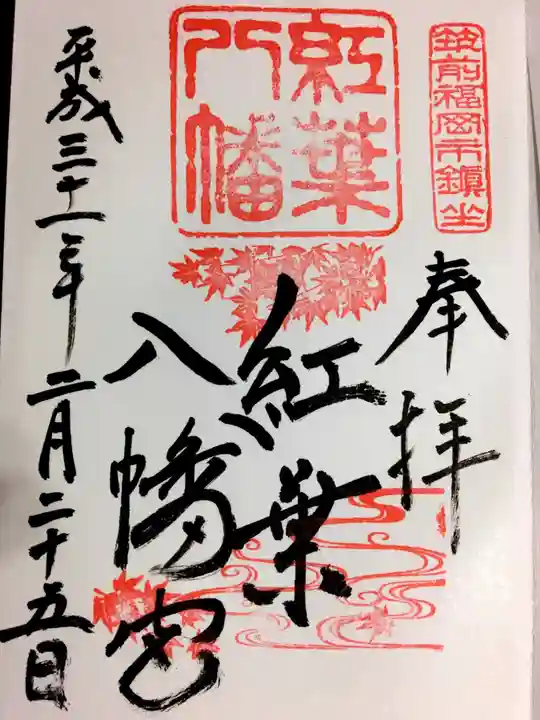 筑前福岡市鎮坐
奉拝
紅葉
八幡
紅葉
八幡宮
平成三十一年二月二十五日